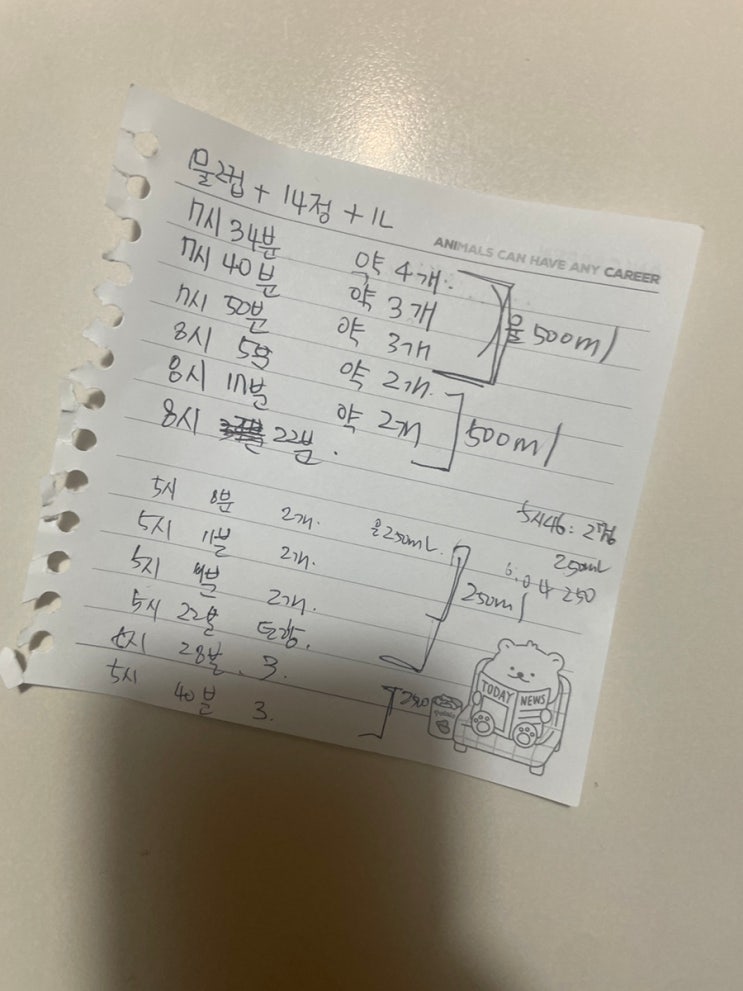 물2컵 + 14정 + 1L
ANIMALS CAN HAVE ANY CAREER
7시 34분 약 4개.
7시 40분 약 3개
7시 50분 약 3개
물 500ml
8시 5분 약 2개.
8시 17분 약 2개
500ml
8시 22분.
5시 8분 2개. 물250mL.
5시46: 2정
250mL
5시 11분 2개.
6:04 250
250ml
5시 2개.
5시 22분 토함.
5시 28분. 3.
5시 40분 3.
250
TODAY NEWS